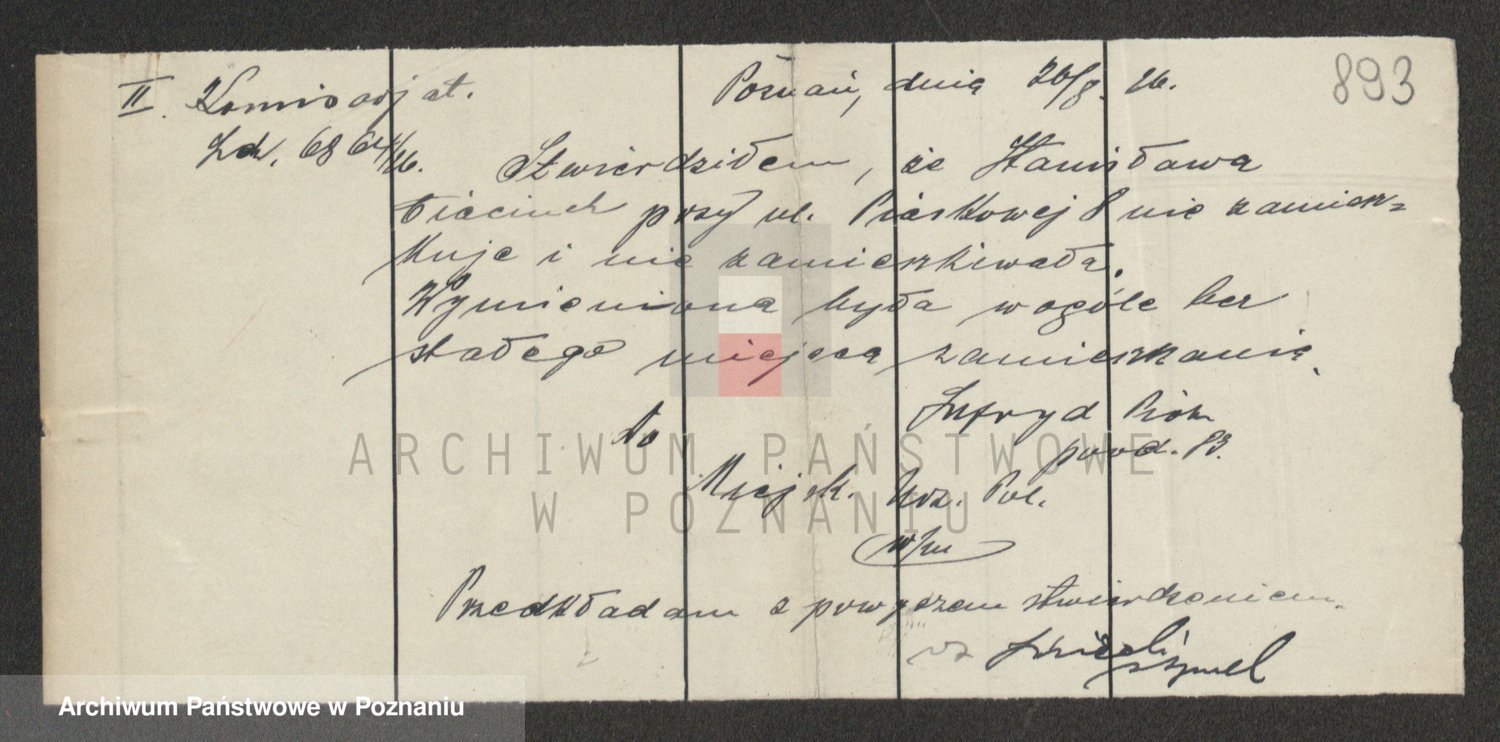 893
II. Komisarjat. Poznań, dnia 26/8. 26.
Ld. 6864/26. Stwierdziłem, że Stanisława
przy ul. Piaskowej 8 nie zamiesz=
kuje i nie zamieszkiwała.
Wymieniona była wogóle bez
stałego miejsca zamieszkania.
Piotr
Do przod. P.P.
Miejsk. Urz. Pol.
w/m
Przedkładam z powyższem stwierdzeniem.
ARCHIWUM PAŃSTWOWE
W POZNANIU
Archiwum Państwowe w Poznaniu